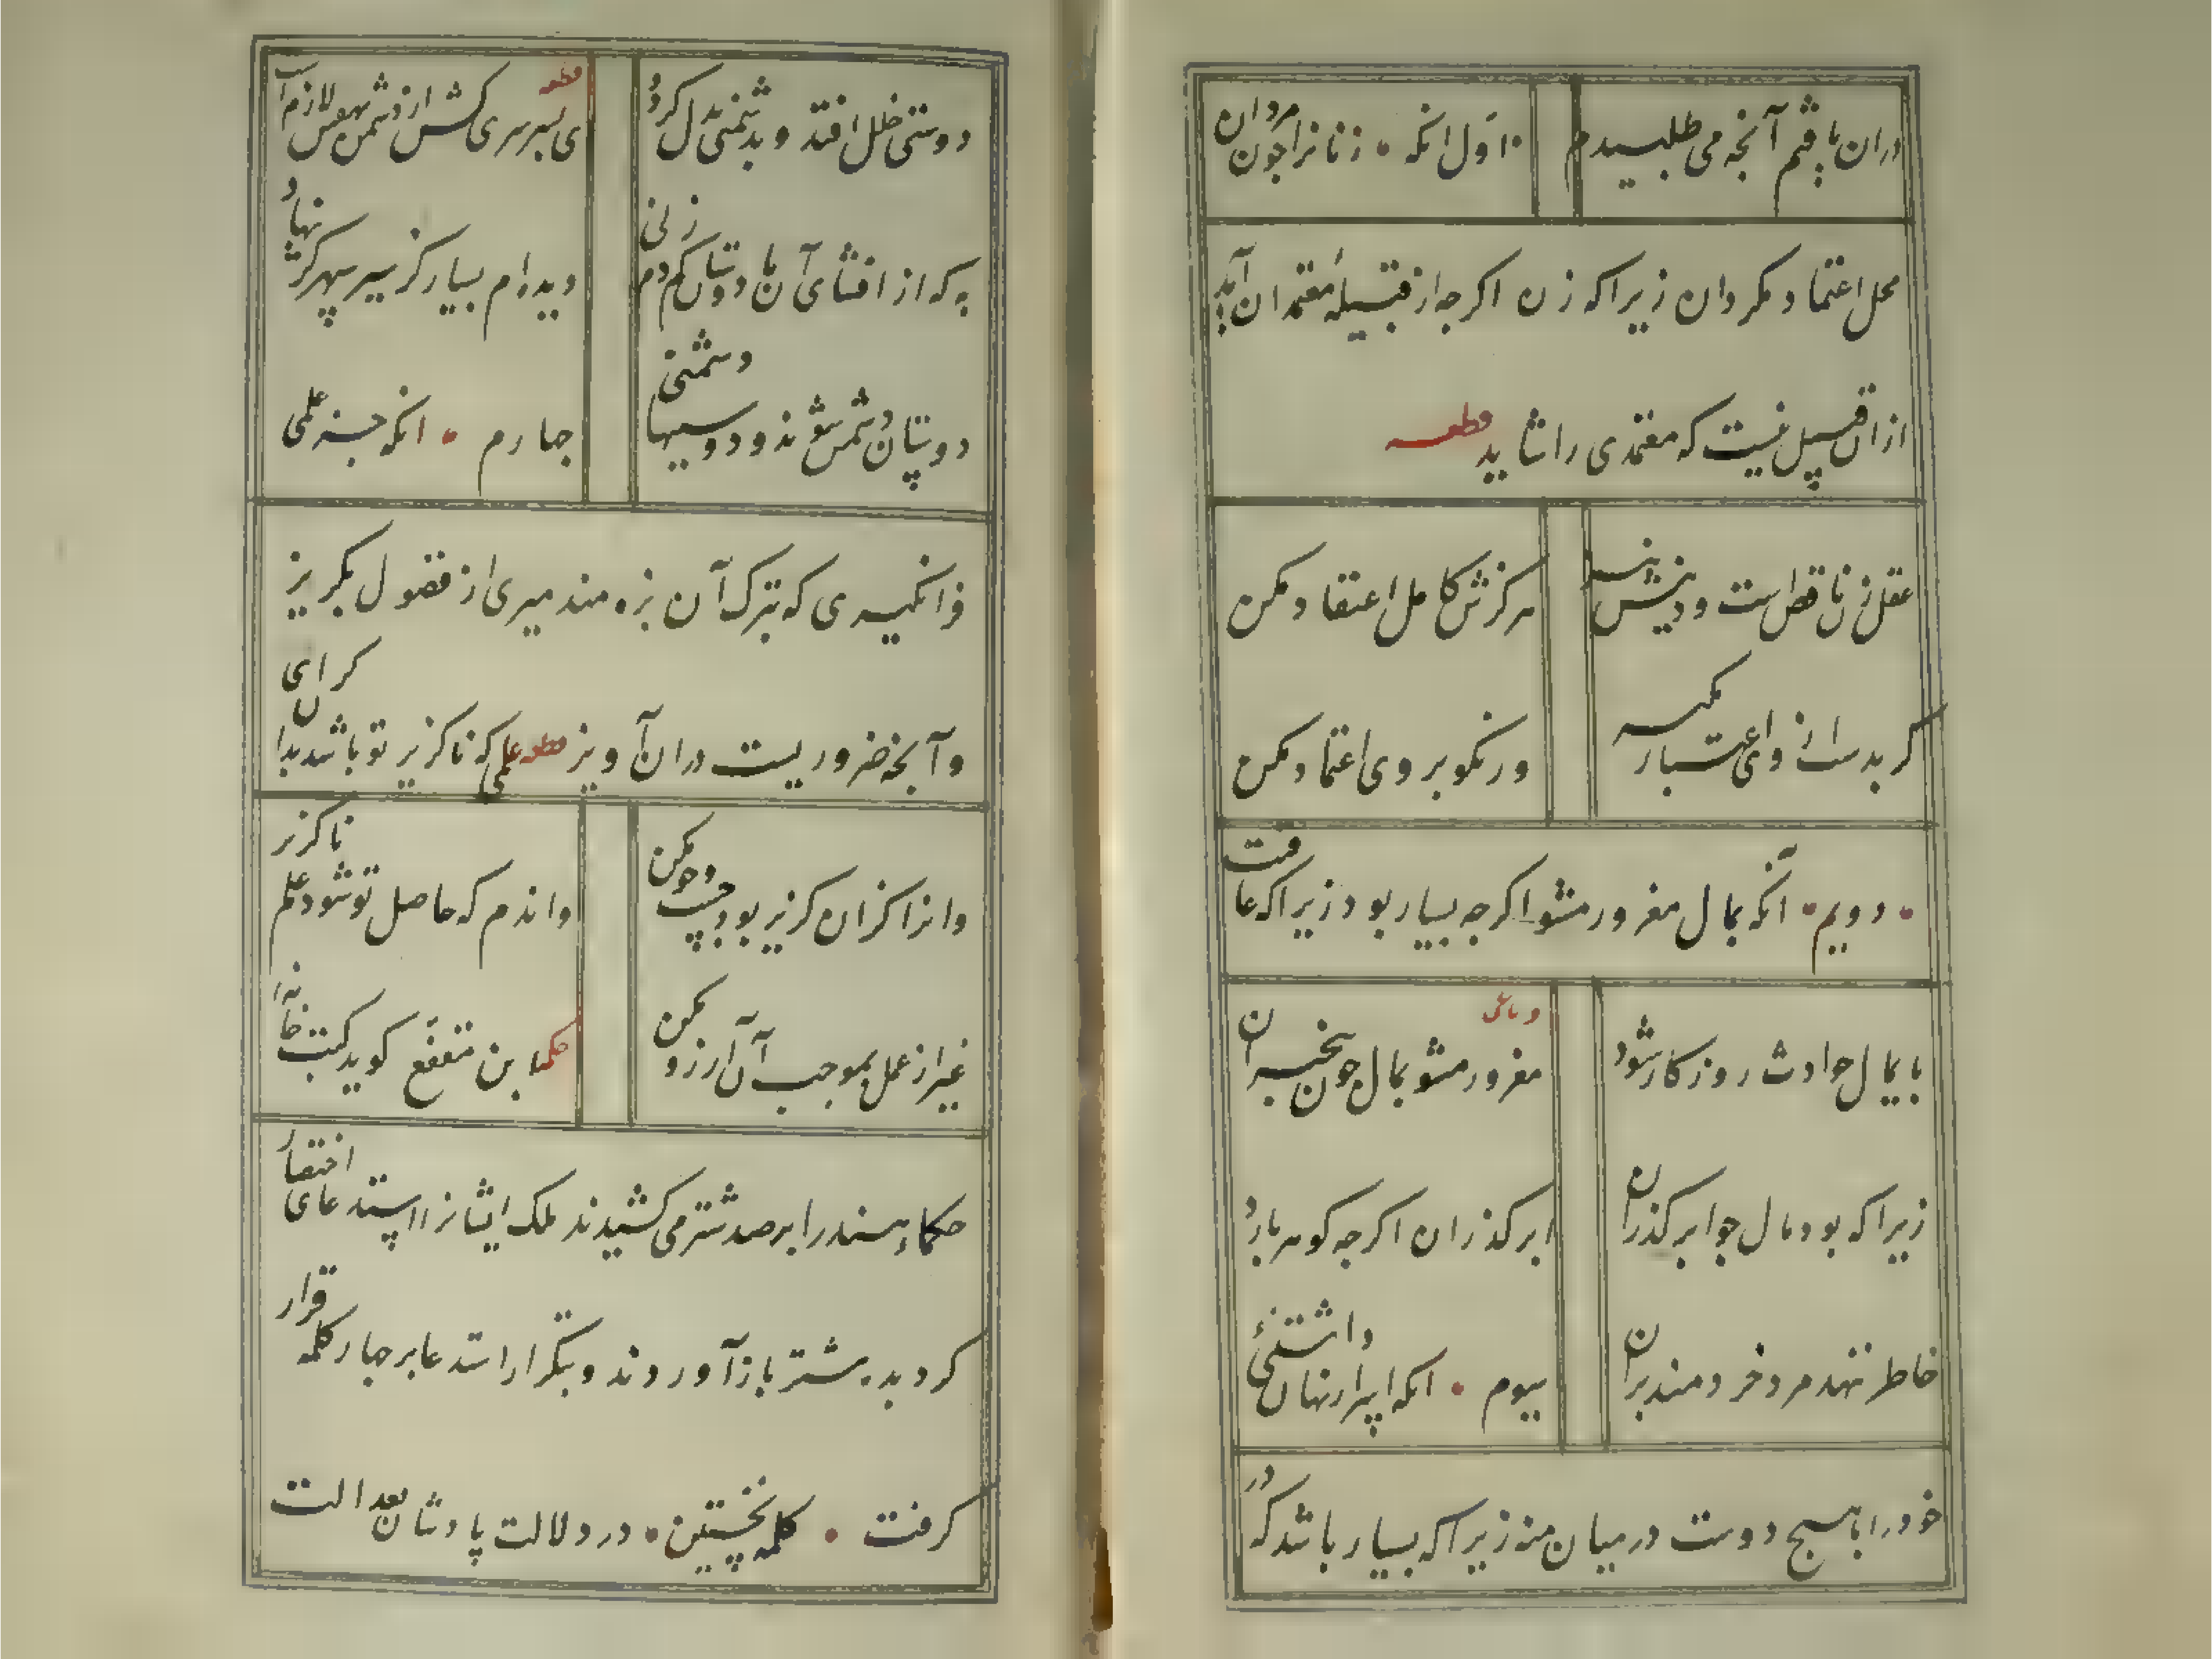 دران یافتم آنچه می طلبیدم
• اوّل انکه • زنانرا چون مردان
محل اعتماد مگردان زیرا که زن اگرچه از قبیلهٔ معتمدان آید
ازان قبیل نیست که معتمدی را شاید قطعه
عقل زن ناقص است و دینش نیز
هرگزش کامل اعتقاد مکن
گر بدست از وی اعتبار مگیر
ور نکو بر وی اعتماد مکن
• دویم • آنکه بمال مغرور مشو اگرچه بسیار بود زیرا که عاقبت
پایمال حوادث روزگار شود
رباعی
مغرور مشو بمال چون بیخبران
زیرا که بود مال چو ابر گذران
ابر گذران اگرچه گوهر بارد
خاطر ننهد مرد خردمند بران
سیوم • انکه اسرار نهان داشتنیٔ
خود را با هیچ دوست در میان منه زیرا که بسیار باشد که در
دوستی خلل افتد و بدشمنی بدل گردد
قطعه
ای پسر سری کش از دشمن نهفتن لازم است
به که از افشای آن با دوستان کم دم زنی
دیده‌ام بسیار کز سیر سپهر کژ نهاد
دوستان دشمن شوند و دوستیها دشمنی
چهارم • انکه جز علمی
فرا نگیری که بترک آن بزه مند میری از فضول بگریز
و آنچه ضروریست دران آویز قطعه علمی که ناگزیر تو باشد بدان گرای
وانرا کزان گزیر بود جست و جو مکن
واندم که حاصل تو شود علم ناگزیر
غیر از عمل بموجب آن آرزو مکن
حکمه ابن مقفّع گوید کتب خانهٔ
حکماء هند را بر صد شتر می کشیدند ملک ایشانرا استدعای اختصار
کرد بده شتر باز آوردند و بتکرار استدعا بر چهار کلمه قرار
گرفت • کلمه نخستین • در دلالت پادشاهان بعدالت